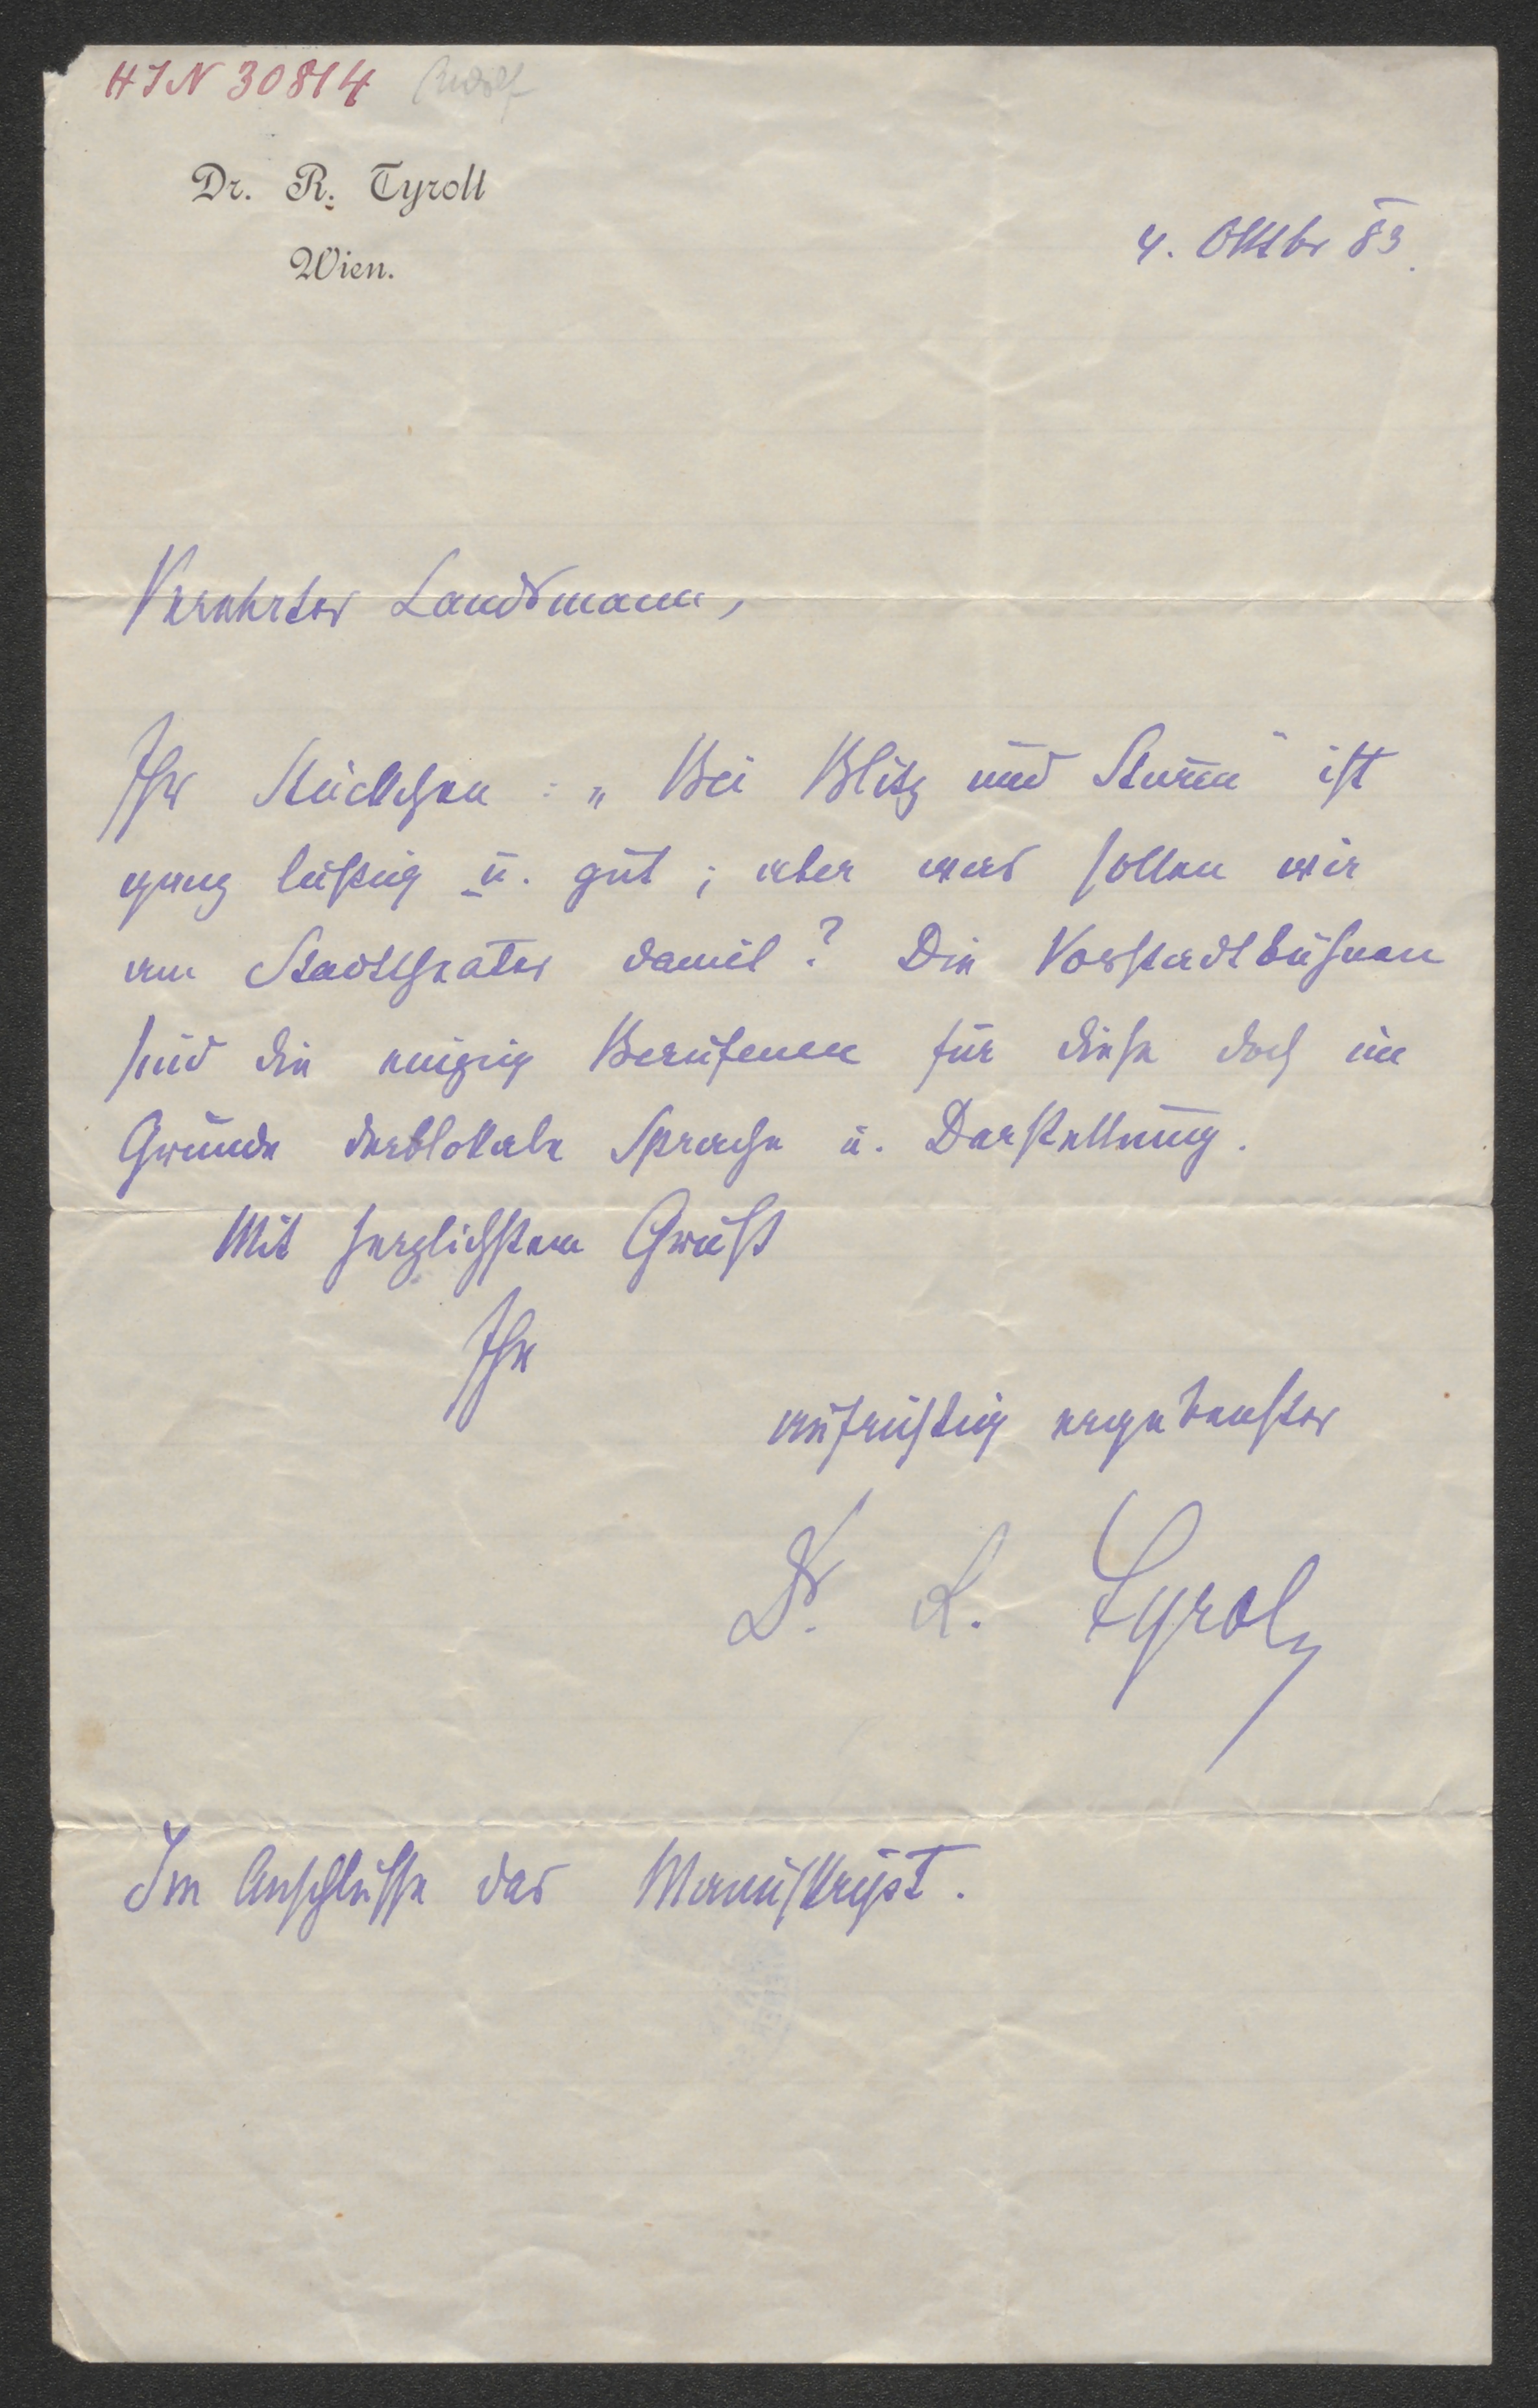 HIN 30814 Rudolf
Dr. R. Tyrolt
Wien.
4. Oktbr 83.
Verehrter Landsmann,
Ihr Stückchen : „Bei Blitz und Sturm" ist
ganz lustig u. gut ; aber was sollen wir
am Stadttheater damit? Die Vorstadtbühnen
sind die einzig Berufenen für diese doch im
Grunde derblokale Sprache u. Darstellung.
Mit herzlichstem Gruß
Ihr
aufrichtig ergebenster
Dr. R. Tyrolt
Im Anschlusse das Manuskript.